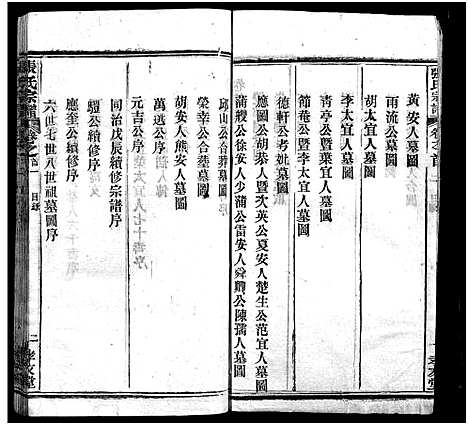 張氏宗譜 卷之首
黃安人墓圖
雨流公墓圖
胡太宜人墓圖
李太宜人墓圖
青亭公暨葉宜人墓圖
節菴公暨李太宜人墓圖
德軒公考妣墓圖
應圖公胡恭人暨次英公夏安人楚生公范宜人墓圖
蒲襏公徐安人少蒲公雷安人舜鼎公陳孺人墓圖
邱山公合葬墓圖
榮幸公合葬墓圖
胡安人熊安人墓圖
萬選公序
元吉公序
同治戊辰續修宗譜序
騮公續修序
應奎公續修序
六世七世八世祖墓圖序
張氏宗譜 卷之首 目錄 二 孝友堂